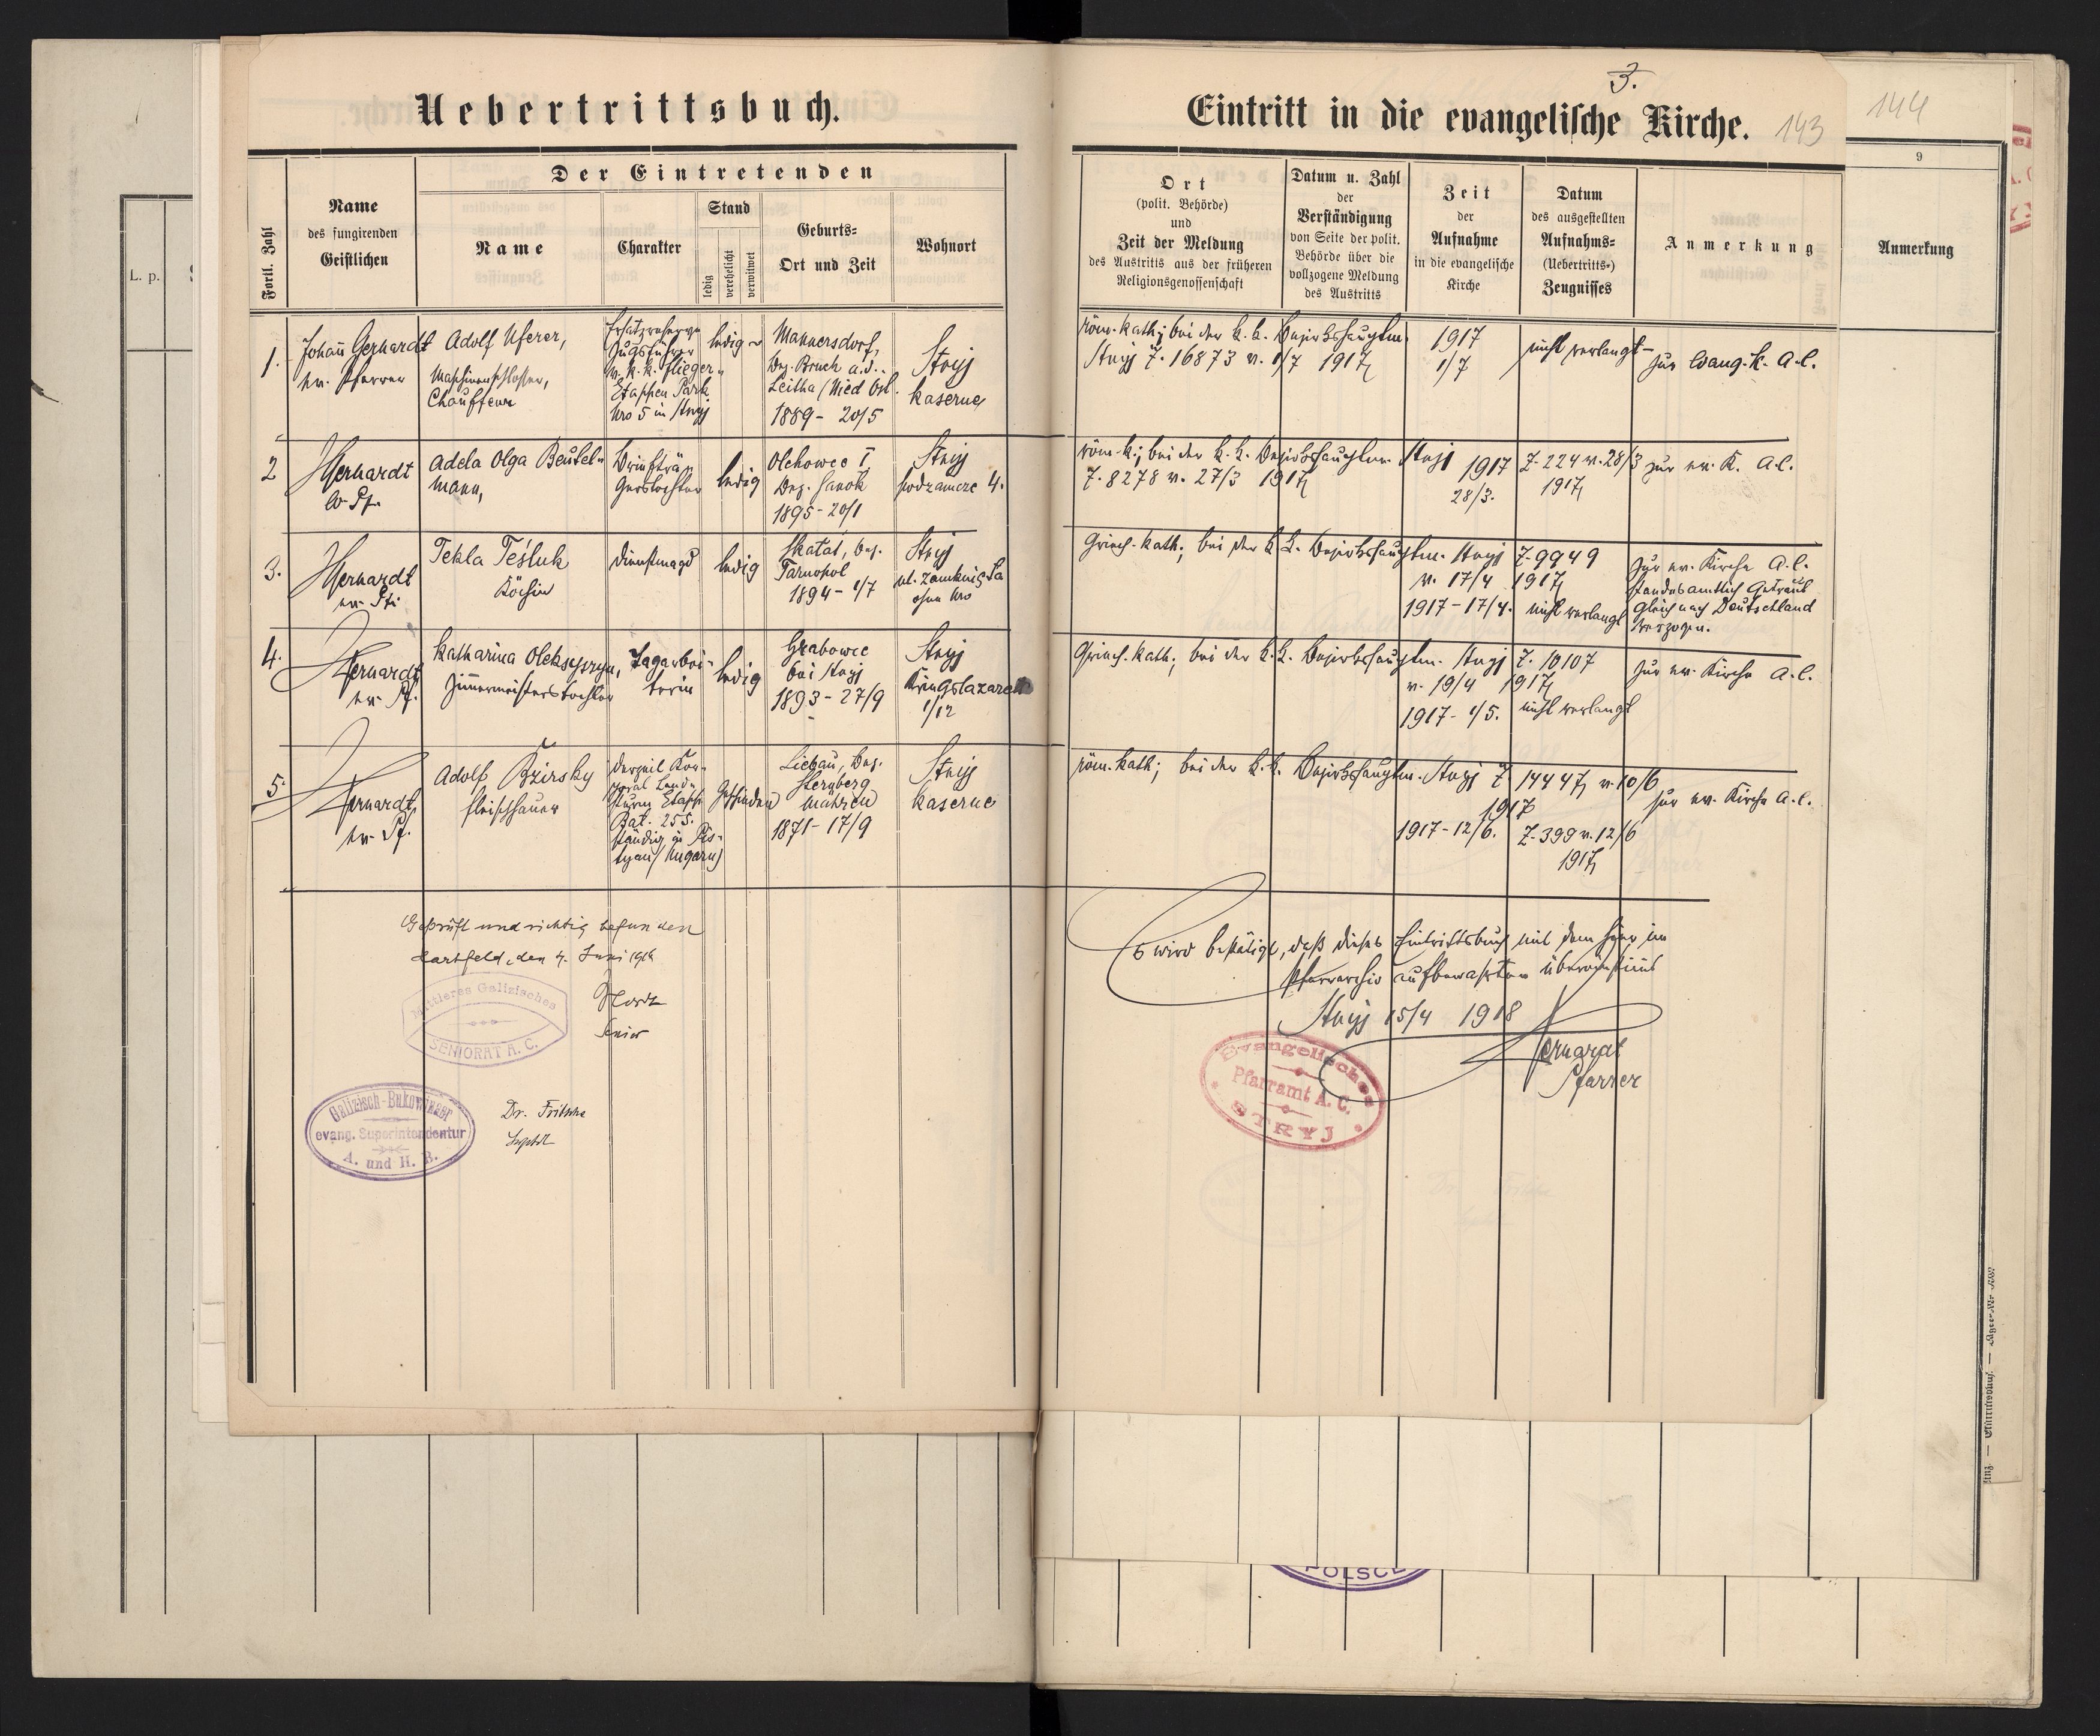 3.
Uebertrittsbuch.
Eintritt in die evangelische Kirche.
143
144
9
L. p.
Fortl. Zahl
Name
des fungirenden
Geistlichen
Der Eintretenden
Name
Charakter
Stand
ledig
verehelicht
verwitwet
Geburts-
Ort und Zeit
Wohnort
Ort
(polit. Behörde)
und
Zeit der Meldung
des Austritts aus der früheren
Religionsgenossenschaft
Datum u. Zahl
der
Verständigung
von Seite der polit.
Behörde über die
vollzogene Meldung
des Austritts
Zeit
der
Aufnahme
in die evangelische
Kirche
Datum
des ausgestellten
Aufnahms-
(Uebertritts-)
Zeugnisses
Anmerkung
Anmerkung
1.
Johann Gerhardt
ev. Pfarrer
Adolf Uferer,
Maschinenschlosser,
Chauffeur
Ersatzreserve
Zugsführer
k. k. Flieger-
Etappen Park
Nro 5 in Stryj
ledig
Mannersdorf,
Bez. Bruck a. d.
Leitha (Nied Öst.
1889 - 20/5
Stryj
Kaserne
röm. kath; bei der k. k. Bezirkshauptm.
Stryj Z. 16873 v. 1/7 1917
1917
1/7
nicht verlangt
zur Evang. K. A. C.
2
Gerhardt
ev. Pf.
Adela Olga Beutel-
mann,
Briefträ-
gerstochter
ledig
Olchowce I
Bez. Sanok
1895 - 20/1
Stryj
Podzamcze 4.
röm. k; bei der k. k. Bezirkshauptm. Stryj
Z. 8278 v. 27/3 1917
1917
28/3.
Z. 224 v. 28/3
1917
zur ev. K. A. C.
3.
Gerhardt
ev. Pf.
Tekla Teśluk
Köchin
Dienstmagd
ledig
Skatat, Bez.
Tarnopol
1894 - 1/7
Stryj
ul. Zamknięta
ohne Nro
Griech. kath; bei der k. k. Bezirkshauptm. Stryj Z. 9949
v. 17/4 1917
1917 - 17/4.
nicht verlangt
Zur ev. Kirche A. C.
Standesamtlich Getraut
gleich nach Deutschland
verzogen.
4.
Gerhardt
ev. Pf.
Katharina Oleksyszyn,
Zimmermeisterstochter
Tagarbei-
terin
ledig
Grabowce
bei Stryj
1893 - 27/9
Stryj
Kriegslazarett
1/12
Griech. kath; bei der k. k. Bezirkshauptm. Stryj Z. 10107
v. 19/4 1917
1917 - 1/5.
nicht verlangt
Zur ev. Kirche A. C.
5.
Gerhardt,
ev. Pf.
Adolf Bžirsky
Fleischhauer
derzeit Kor-
poral Land-
sturm Etapp.
Bat. 255.
ständig in Pis-
tyan (Ungarn)
Geschieden
Liebau, Bez.
Sternberg
Mähren
1871 - 17/9
Stryj
Kaserne
röm. kath; bei der k. k. Bezirkshauptm. Stryj Z. 14447 v. 10/6
1917
1917 - 12/6.
Z. 399 v. 12/6
1917
zur ev. Kirche A. C.
Geprüft und richtig befunden
Hartfeld, den 4. Juni 1918
Senior
Mittleres Galizisches
SENIORAT A. C.
Galizisch-Bukowinaer
evang. Superintendentur
A. und H. B.
Dr. Fritsche
Suptdt
Es wird bestätigt, daß dieses Eintrittsbuch mit dem hier im
Pfarrarchiv aufbewahrten übereinstimmt
Stryj 15/4 1918
Gerhardt
Pfarrer
Evangelisches
Pfarramt A. C.
STRYJ
POLSCE